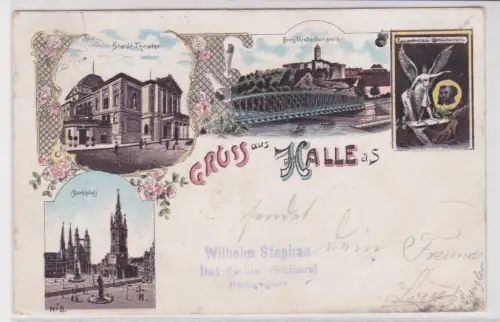 Stadt-Theater
Burg Giebichenstein
GRUSS aus HALLE a/S
Marktplatz
No 8.
sendet
Dein Freund
Wilhelm Stephan
Bad Sachsa (Südharz)
Pädagogium